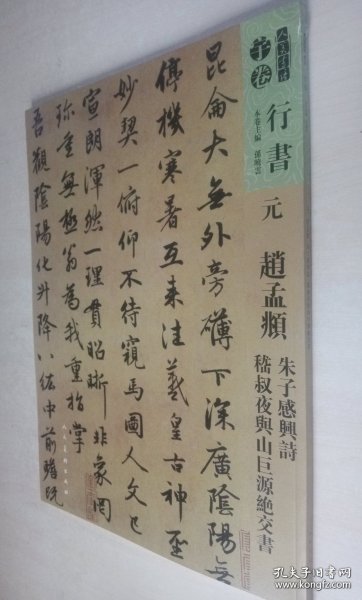 人美書譜
宇卷
行書
本卷主編 孫曉雲
元 趙孟頫
朱子感興詩
嵇叔夜與山巨源絶交書
昆侖大無外旁礴下深廣陰陽無
停機寒暑互来往羲皇古神聖
妙契一俯仰不待窺馬圖人文已
宣朗渾然一理貫昭晰非象罔
珎重無極翁為我重指掌
吾觀陰陽化升降八紘中前瞻既
人民美術出版社
孔夫子旧书网